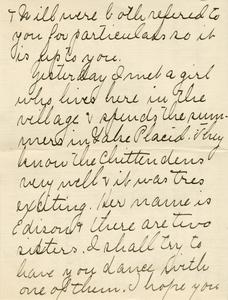 + Will were both referred to
you for particulars so it
is up to you.
Yesterday I met a girl
who lives here in the
village & spends the sum-
mers in Lake Placid. They
know the Chittendens
very well & it was tres
exciting. Her name is
Edison & there are two
sisters. I shall try to
have you dance with
one of them. I hope you